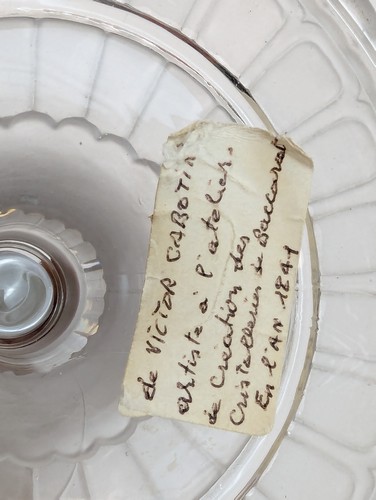 de VICTOR CABOTIN
artiste à l'atelier
de Creation des
Cristalleries de Baccarat
En l'AN 1841